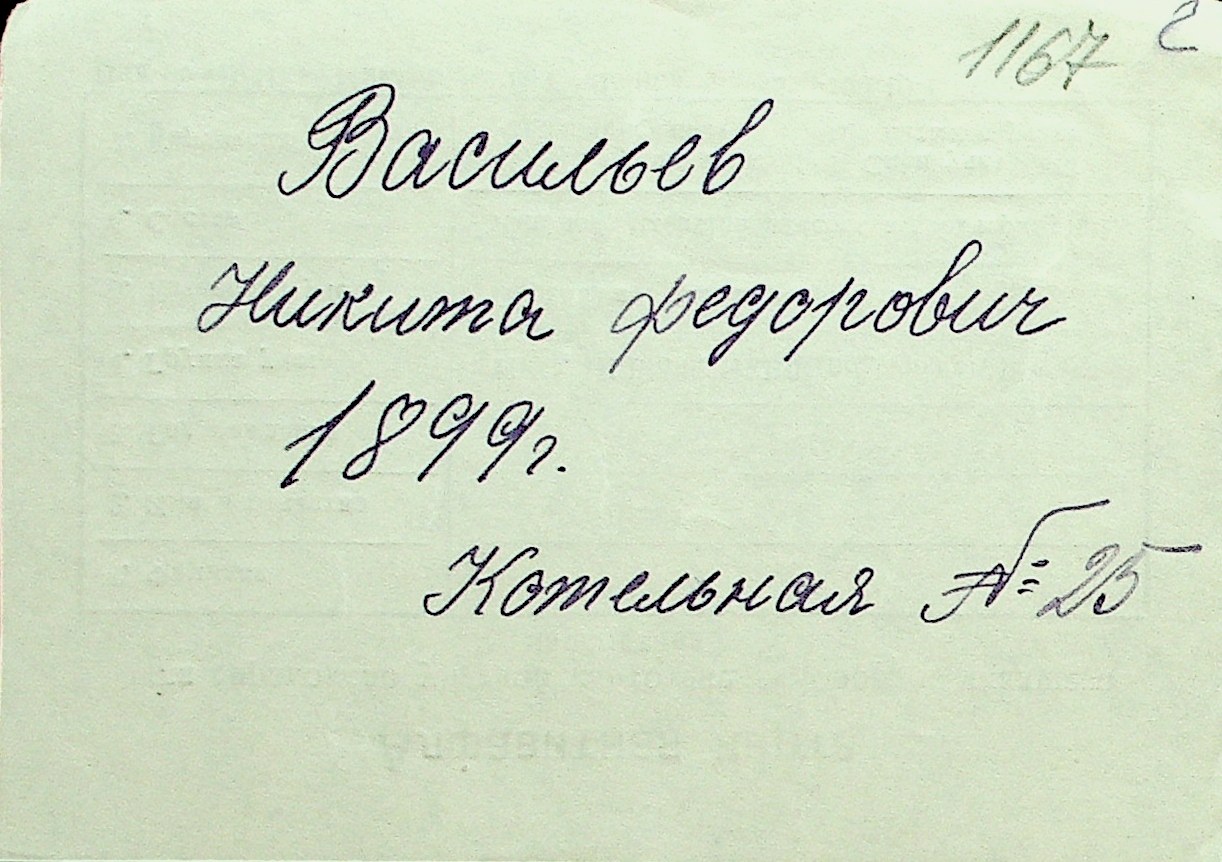 1167 2
Васильев
Никита Федорович
1899г.
Котельная № 25